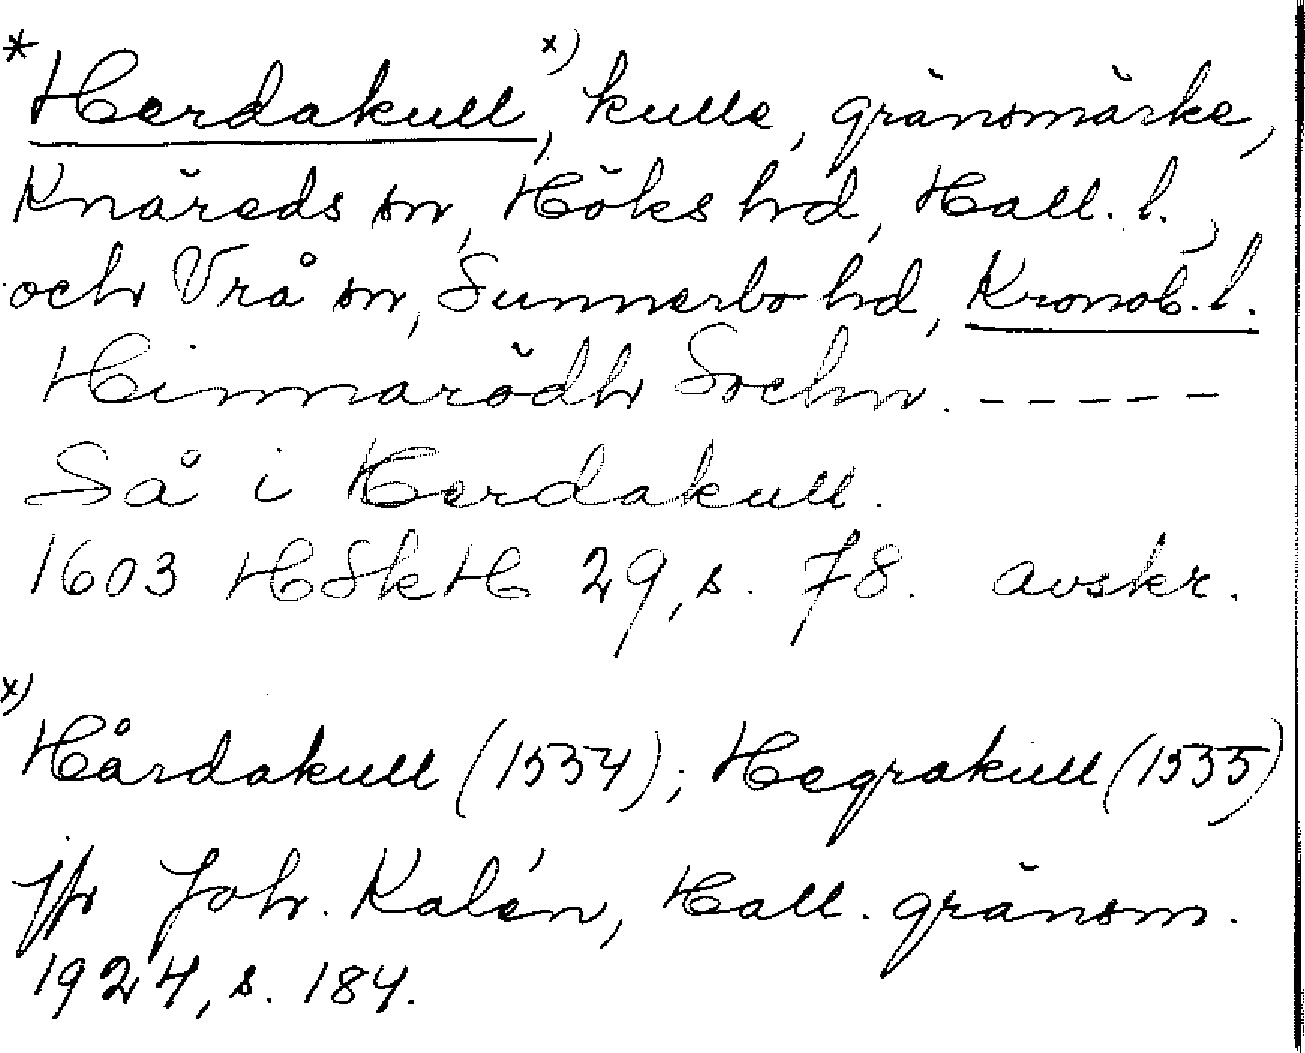 * Herdakull x), kulle, gränsmärke,
Knäreds sn, Höks hrd, Hall. l.,
och Vrå sn, Sunnerbo hrd, Kronob. l.
Hinnarödh Sochn. - - - - -
Så i Herdakull.
1603 HSkH 29, s. 78. avskr.
x) Hårdakull (1554); Hegrakull (1555)
jfr Joh. Kalén, Hall. gränsm.
1924, s. 184.